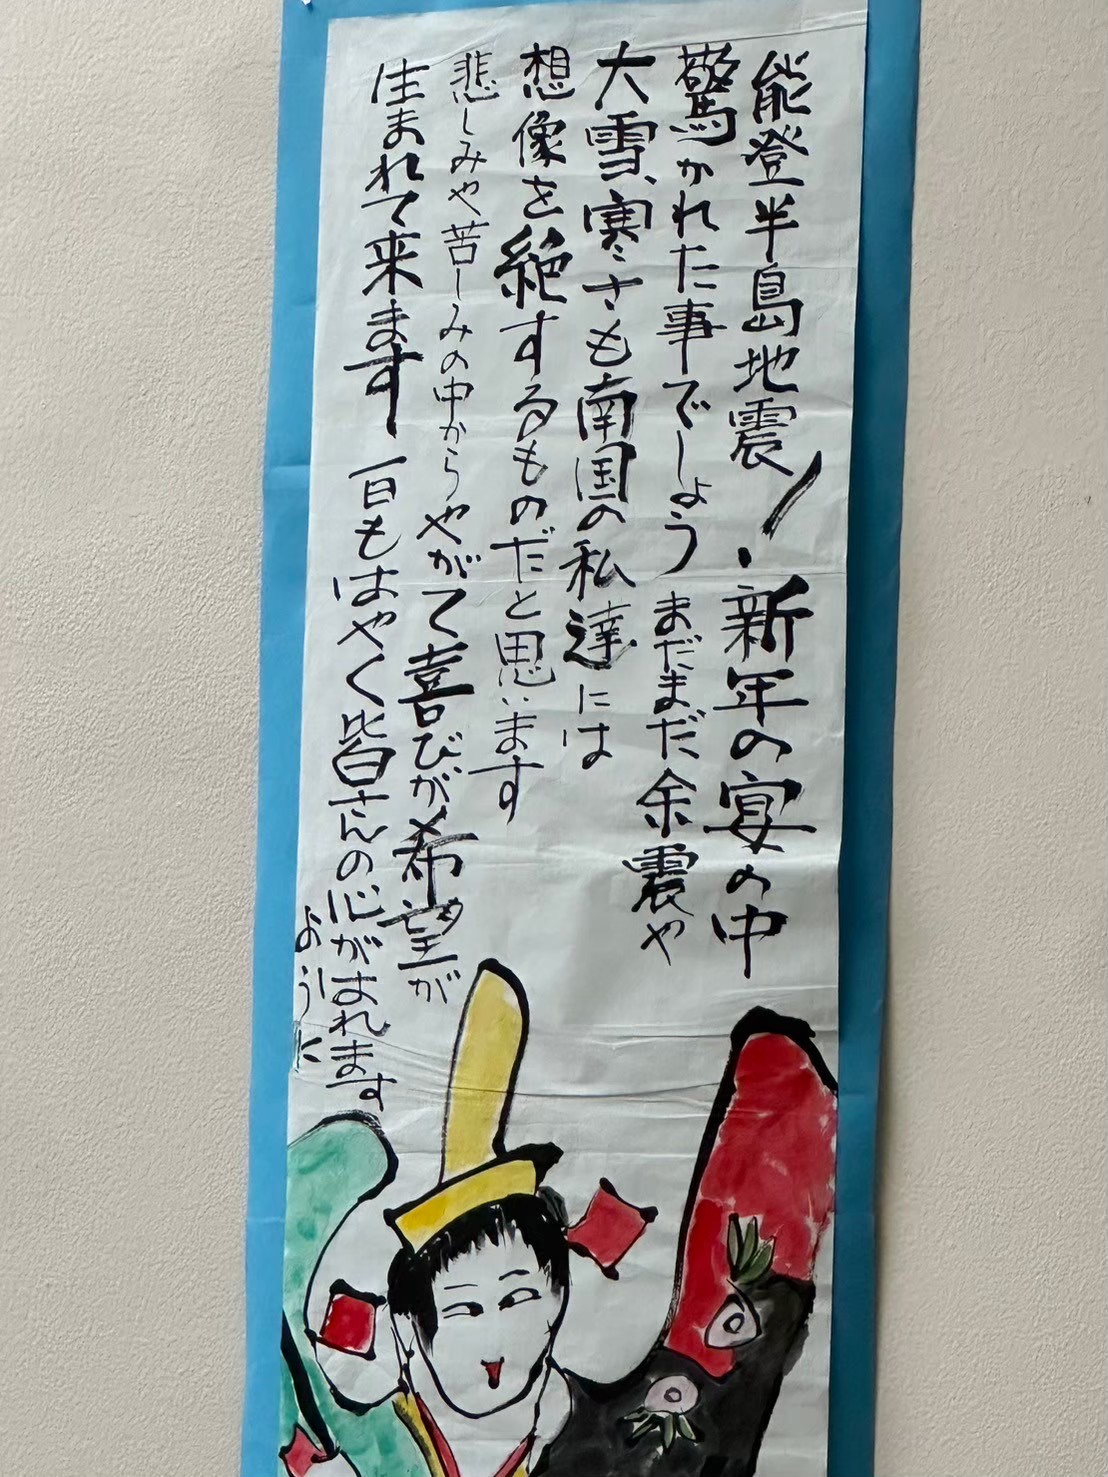 能登半島地震!新年の宴の中
驚かれた事でしょうまだまだ余震や
大雪、寒さも南国の私達には
想像を絶するものだと思います
悲しみや苦しみの中からやがて喜びが希望が
生まれて来ます一日もはやく皆さんの心がはれます
ように